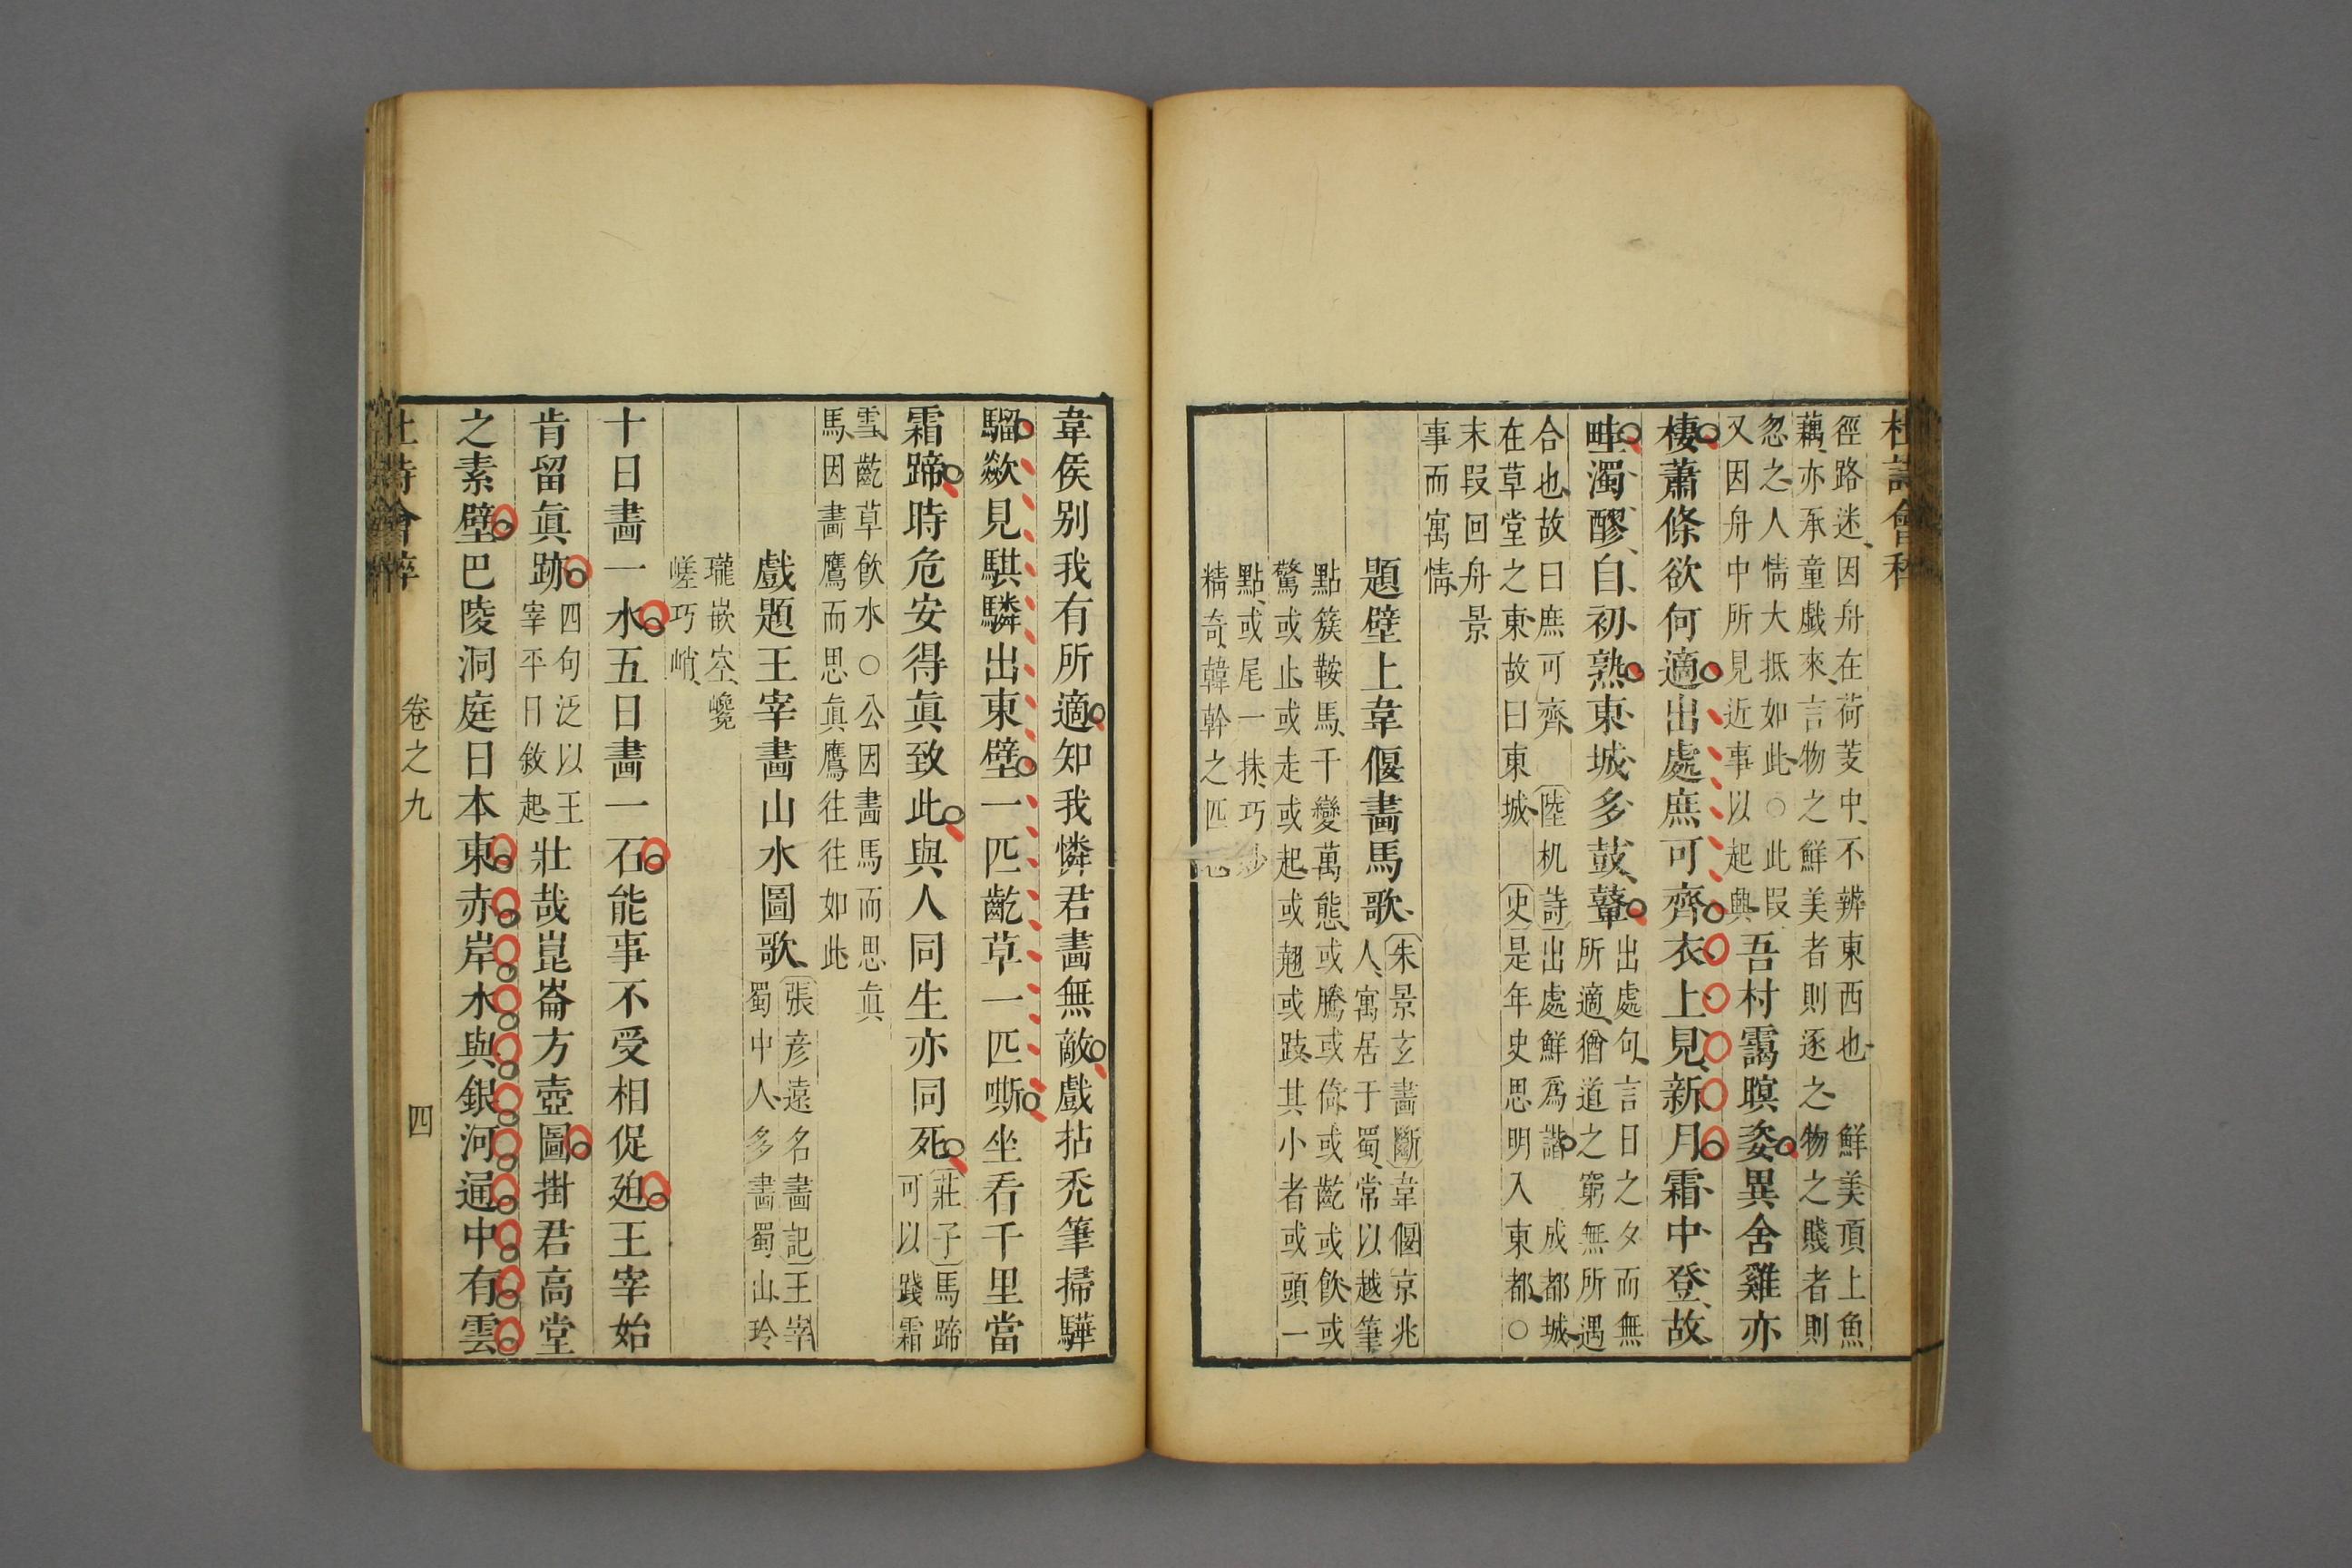 杜詩會稡
徑路迷、因舟在荷芰中、不辨東西也 鮮美頂上魚
藕、亦承童戲來、言物之鮮美者則逐之、物之賤者則
忽之、人情大抵如此、○此段
又因舟中所見近事以起興
吾村靄暝姿異舍雞亦
棲蕭條欲何適出處庶可齊衣上見新月霜中登故
畦濁醪自初熟東城多鼓鼙
出處句、言日之夕而無
所適、猶道之窮無所遇
合也、故曰庶可齊、 陸机詩出處鮮爲諧 成都城
在草堂之東、故曰東城、 史是年史思明入東都、○
末段回舟景
事而寓情、
題壁上韋偃畫馬歌
朱景玄畫斷韋偃京兆
人、寓居于蜀、常以越筆
點簇鞍馬、千變萬態、或騰或倚、或齕或飲、或
驚或止、或走或起、或翹或跂、其小者或頭一
點、或尾一抹、巧妙
精奇、韓幹之匹也
韋侯别我有所適知我憐君畫無敵戲拈禿筆掃驊
騮歘見騏驎出東壁一匹齕草一匹嘶坐看千里當
霜蹄時危安得眞致此與人同生亦同死
莊子馬蹄
可以踐霜
雪、齕草飲水○公因畫馬而思眞
馬、因畫鷹而思眞鷹、往往如此、
戲題王宰畫山水圖歌
張彦遠名畫記王宰
蜀中人、多畫蜀山、玲
瓏嵌空、巉
嵯巧峭、
十日畫一水五日畫一石能事不受相促廹王宰始
肯留眞跡
四句泛以王
宰平日敘起
壯哉崑崙方壺圖掛君高堂
之素壁巴陵洞庭日本東赤岸水與銀河通中有雲
杜詩會稡
卷之九
四